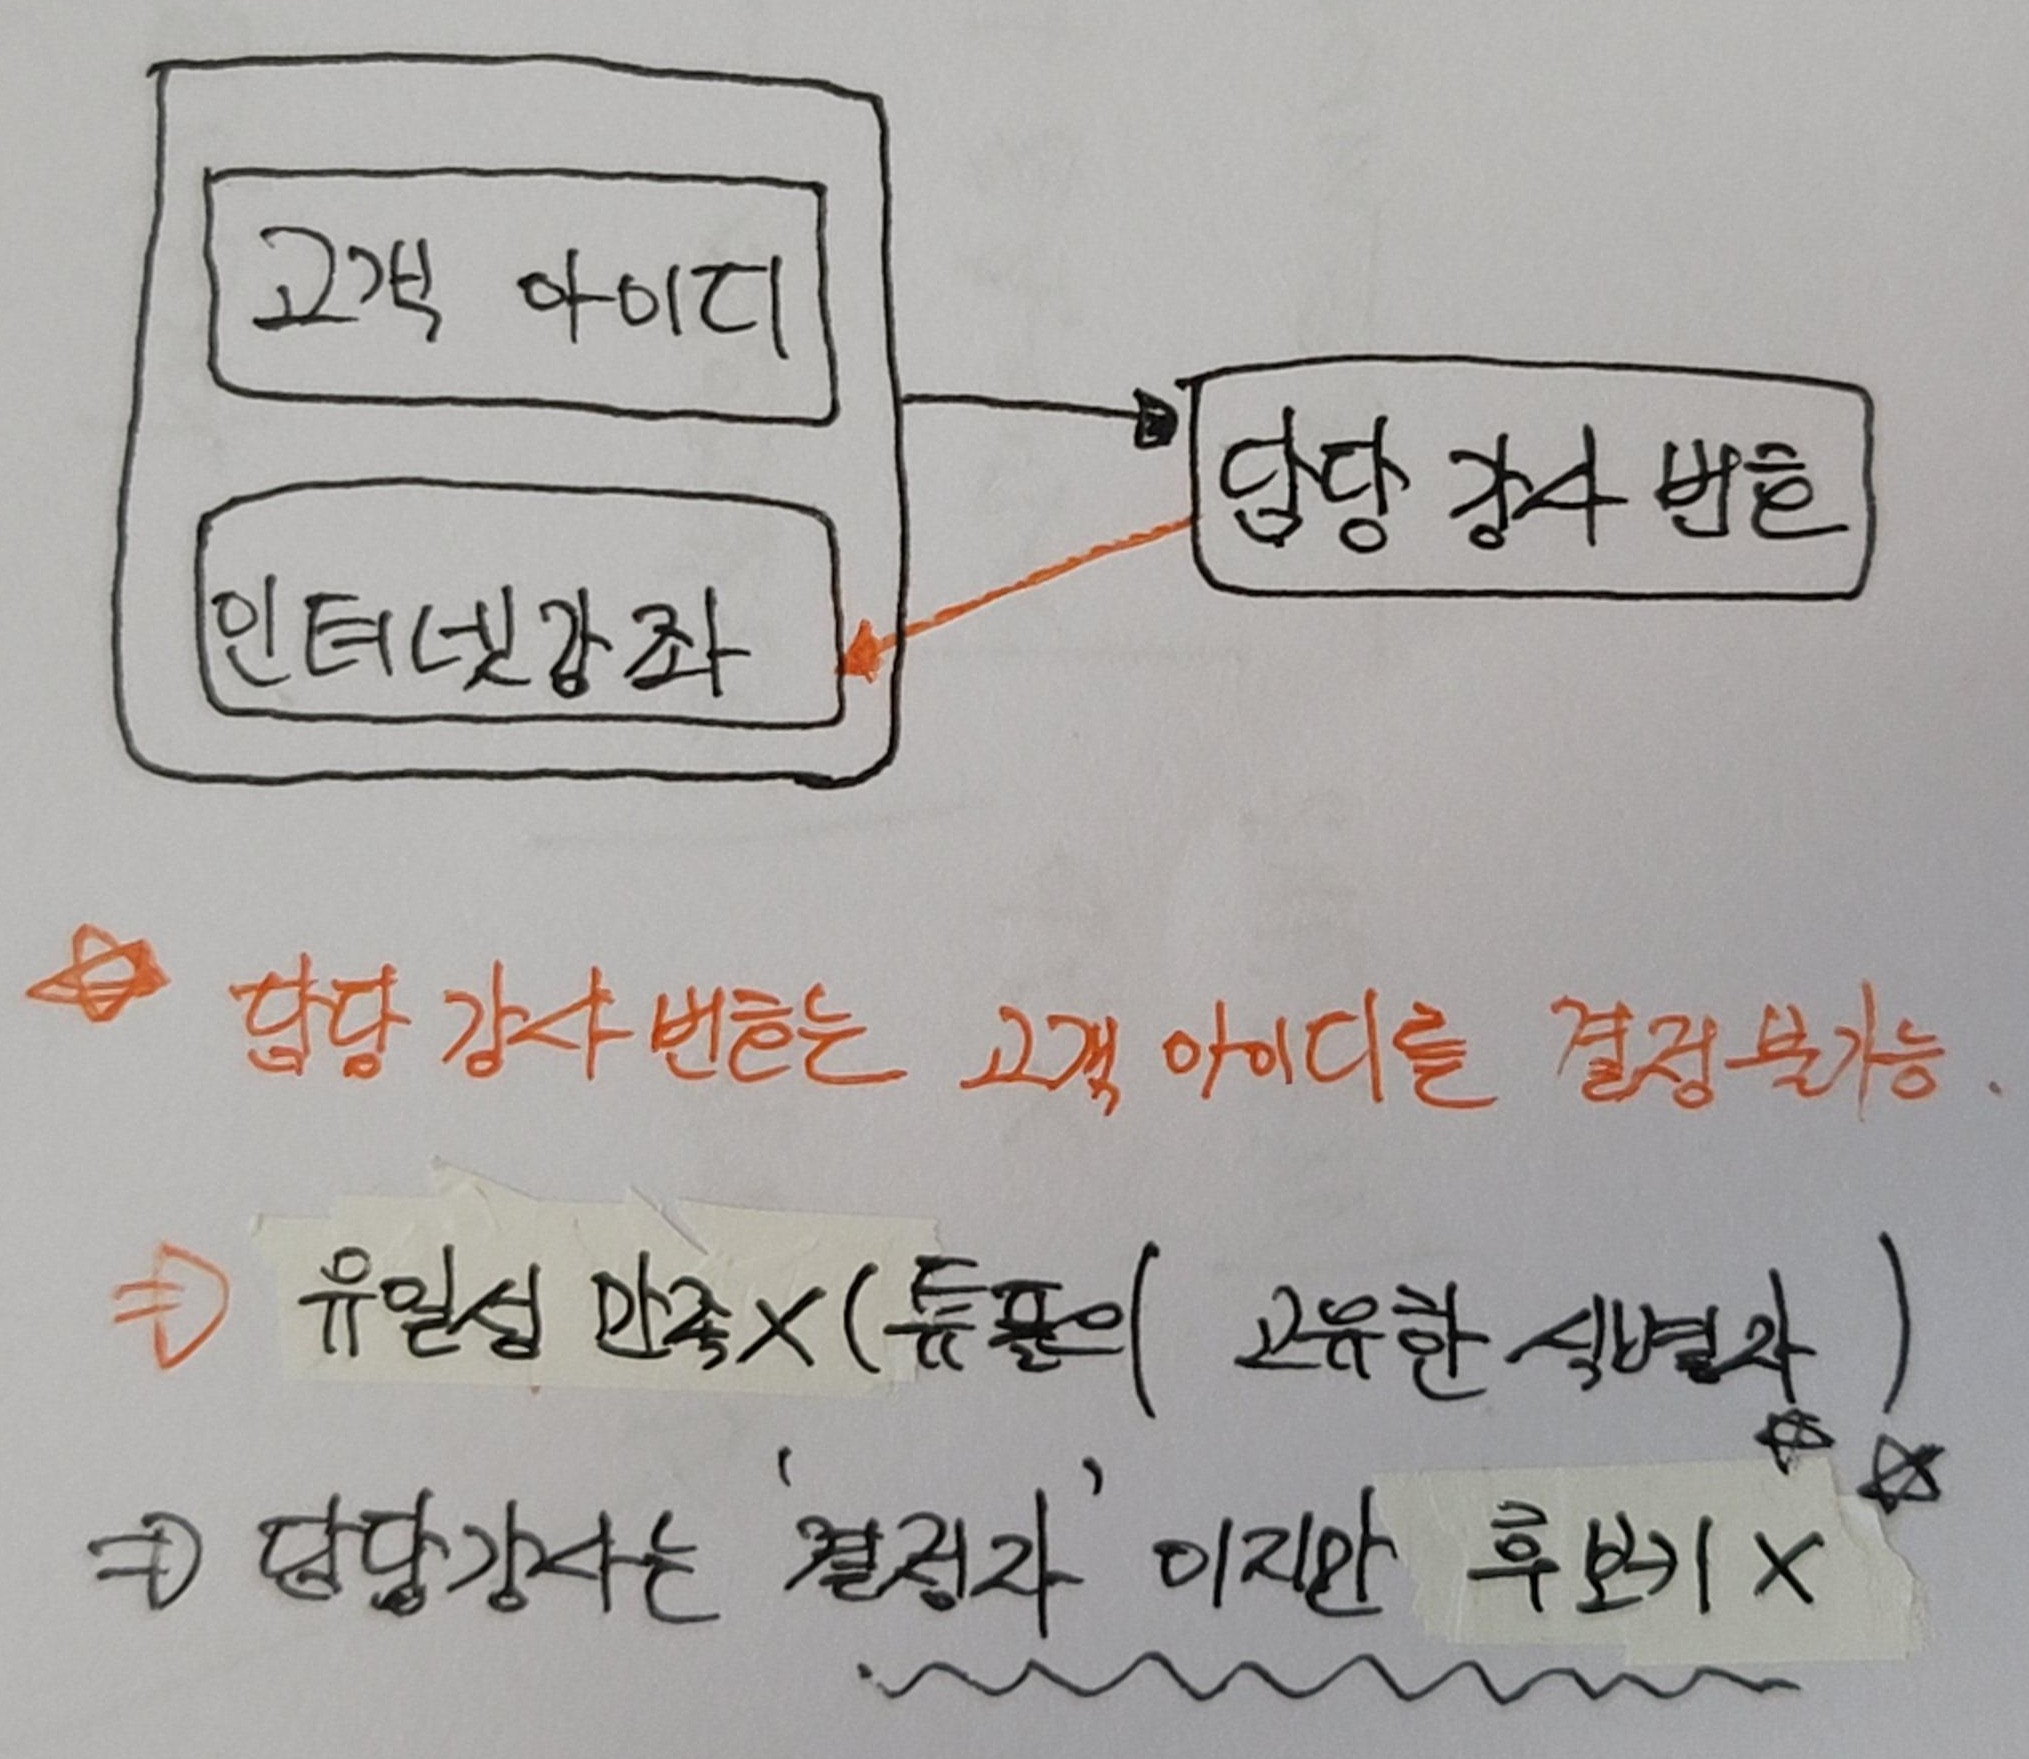 고객 아이디
담당 강사 번호
인터넷강좌
담당 강사 번호는 고객 아이디를 결정 불가능.
⇒ 유일성 만족X (튜플의( 고유한 식별자 )
⇒ 담당강사는 '결정자' 이지만 후보키 X